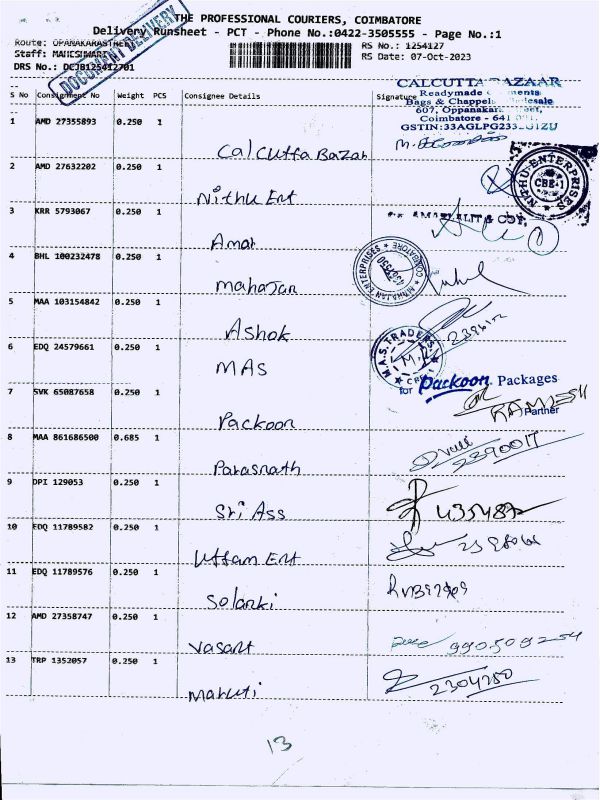 THE PROFESSIONAL COURIERS, COIMBATORE
Delivery Runsheet - PCT - Phone No.:0422-3505555 - Page No.:1
DOCUMENT DELIVERY
Route: OPANAKARASTREET
Staff: MAHESHWARI
DRS No.:
RS No.: 1254127
RS Date: 07-Oct-2023
S No Consignment No Weight PCS Consignee Details Signature
CALCUTTA BAZAAR
Readymade
Bags & Chappels Wholesale
607, Oppanakara Street,
Coimbatore - 641 001.
1 AMD 27355893 0.250 1 Calcutta Bazar
2 AMD 27632202 0.250 1 Nithu Ent
NITHU ENTERPRISES
CBE-1
3 KRR 5793067 0.250 1 Amar
4 BHL 100232478 0.250 1 Mahajan
MAHAJAN ENTERPRISES
COIMBATORE
5 MAA 103154842 0.250 1 Ashok
6 EDQ 24579661 0.250 1 MAS
M.A.S. TRADERS
for Packoon Packages
7 SVK 65087658 0.250 1 Packoon
RAMESH
Partner
8 MAA 861686500 0.685 1 Parasnath
2390017
9 DPI 129053 0.250 1 Sri Ass
10 EDQ 11789582 0.250 1 Uttam Ent
11 EDQ 11789576 0.250 1 Solanki
12 AMD 27358747 0.250 1 Vasant
13 TRP 1352057 0.250 1 Maruti
2304250
13